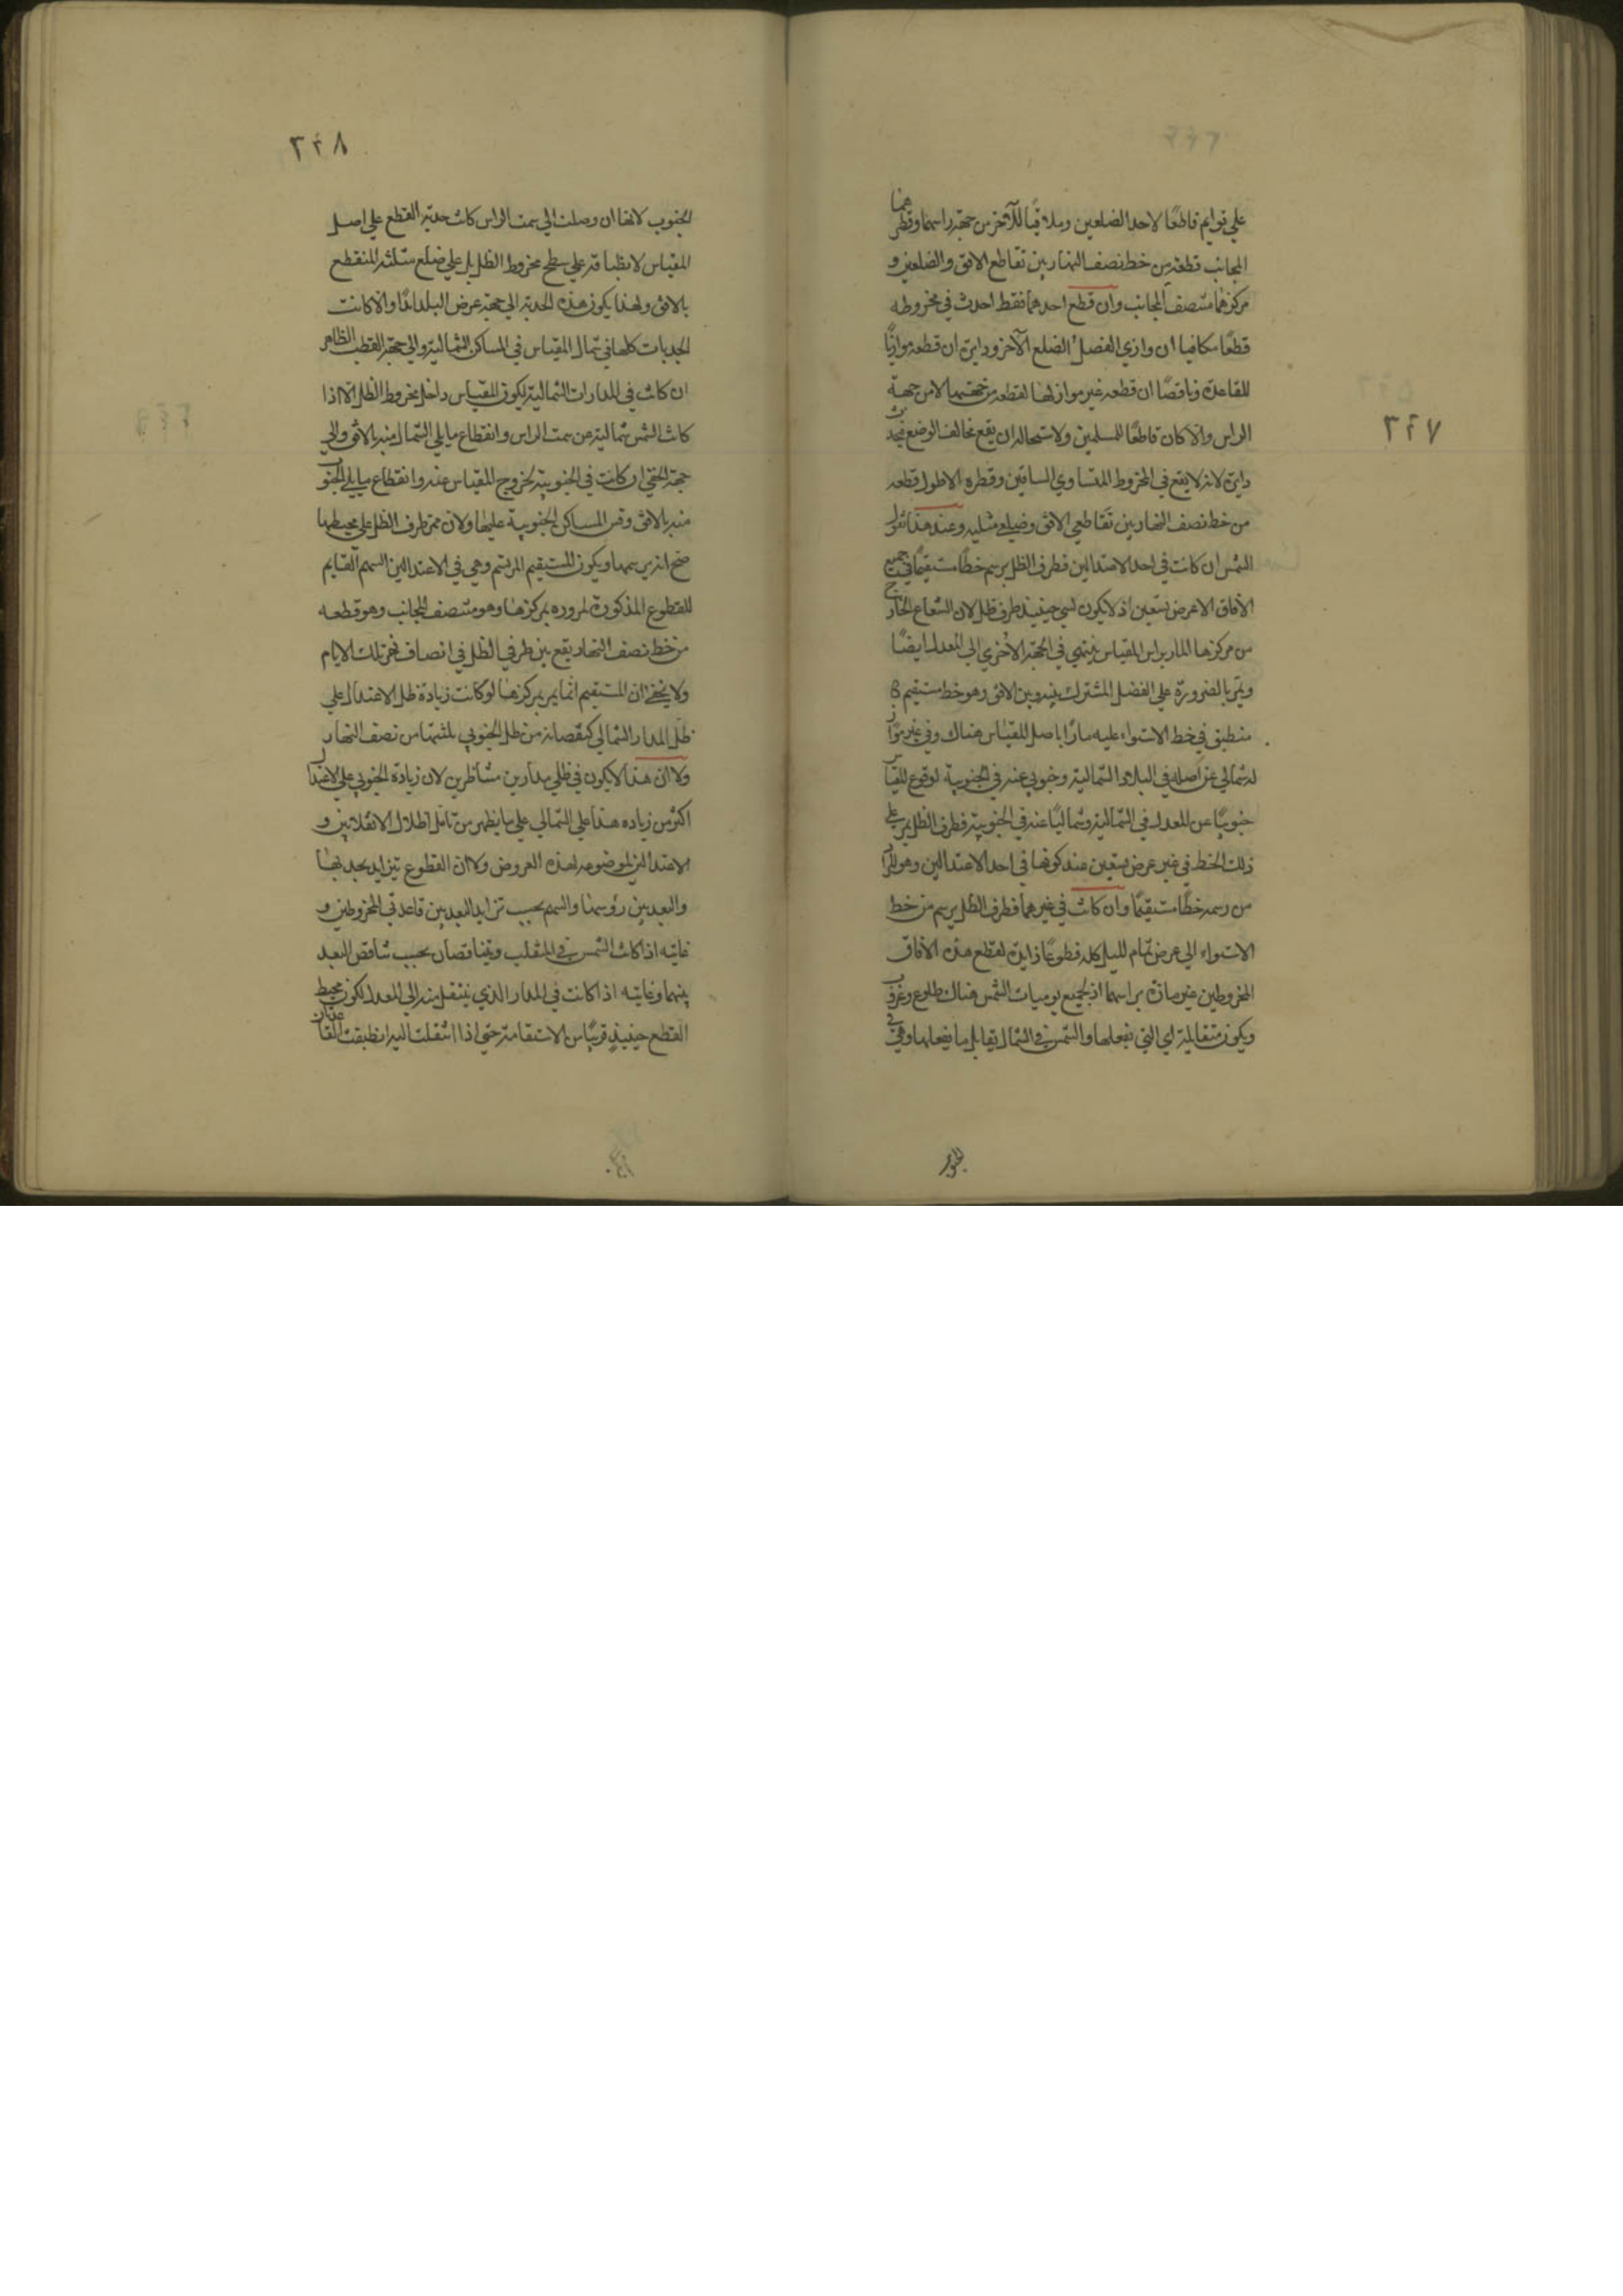 ٣٢٧
علي قوايم قاطعًا لاحد الضلعين وملاقيًا للآخر من جهة راسها وقطر هما
المجانب قطعة من خط نصف النهار بين تقاطع الافق والضلعين و
مركزهما منتصف المجانب وان قطع احدهما فقط احدث في مخروطه
قطعًا مكافيا ان وازي الفصل الضلع الآخر ودايرة ان قطعه موازيًا
للقاعدة وناقصًا ان قطعه غير مواز لها لقطعه من جهتها لا من جهة
الراس والا كان قاطعًا للمسلمين ولاستحاله ان يقع مخالف الوضع فيحدث
دايرة لانه لا يقع في المخروط المتساوي الساقين وقطره الاطول قطعه
من خط نصف النهار بين تقاطعي الافق وضلعي مثلثيه وعند هذا نقول
الشمس ان كانت في احد الاعتدالين فطرف الظل يرسم خطًا مستقيمًا في جميع
الآفاق الا عرض تسعين اذ لا يكون لشي حينيذ طرف ظل لان الشعاع الخارج
من مركزها المار براس المقياس ينتهي في الجهة الاخري الي المعدل ايضًا
ويمر بالضرورة علي الفصل المشترك بينه وبين الافق وهو خط مستقيم
منطبق في خط الاستواء عليه مارًا باصل المقياس هناك وفي غيره مواز
له شمالي عن اصله في البلاد الشمالية وجنوبي عنه في الجنوبية لوقوع المقياس
جنوبيًا عن المعدل في الشمالية وشماليًا عنه في الجنوبية فطرف الظل يمر علي
ذلك الخط في غير عرض تسعين عند كونها في احد الاعتدالين وهو المراد
من رسمه خطًا مستقيمًا وان كانت في غيرهما فطرف الظل يرسم من خط
الاستواء الي عرض تمام الميل كله قطوعًا زايدة لقطع هذه الآفاق
المخروطين غير مارة براسها اذ لجميع يوميات الشمس هناك طلوع وغروب
ويكون متقابلة اي التي تفعلها والشمس في الشمال يقابل ما يفعلها وهي في
الجنوب
٣٢٨
الجنوب لانها ان وصلت الي سمت الراس كانت حدبة القطع علي اصل
المقياس لانطباقه علي سطح مخروط الظل بل علي ضلع مثلثه المنقطع
بالافق ولهذا يكون هذه الحدبة الي جهة عرض البلد ابدًا والا كانت
الحدبات كلها في شمال المقياس في المساكن الشمالية والي جهة القطب الظاهر
ان كانت في المدارات الشمالية ليكون المقياس داخل مخروط الظل الا اذا
كانت الشمس شمالية عن سمت الراس وانقطاع ما يلي الشمال منه بالافق والي
جهة الخفي ان كانت في الجنوبية لخروج المقياس عنه وانقطاع ما يلي الجنوب
منه بالافق وقس المساكن الجنوبية عليها ولان ممر طرف الظل علي محيطها
صح انه يرسمها ويكون المستقيم المرتسم وهي في الاعتدالين السهم القايم
للقطوع المذكورة لمروره بمركزها وهو منتصف المجانب وهو قطعه
من خط نصف النهار يقع بين طرفي الظل في انصاف نهر تلك الايام
ولا يخفي ان المستقيم انما يمر بمركزها لو كانت زيادة ظل الاعتدال علي
ظل المدار الشمالي كنقصانه من ظل الجنوبي بلثمها من نصف النهار
ولا ان هذا لا يكون في ظلي مدارين متناظرين لان زيادة الجنوبي علي الاعتدال
اكثر من زياده هذا علي الشمالي علي ما يظهر من تامل اظلال الانقلابين و
الاعتدالين الموضوعه لهذه العروض ولا ان القطوع تتزايد تحديبها
والبعد بين رؤسها والسهم بحسب تزايد البعد بين قاعدتي المخروطين و
غايته اذا كانت الشمس في المنقلب ويتناقصان بحسب تناقص البعد
بينهما وغايته اذا كانت في المدار الذي ينتقل منه الي المعدل لكون محيط
القطع حينيذ قريبًا من الاستقامة حتي اذا انتقلت اليه انطبقت القاعدتان